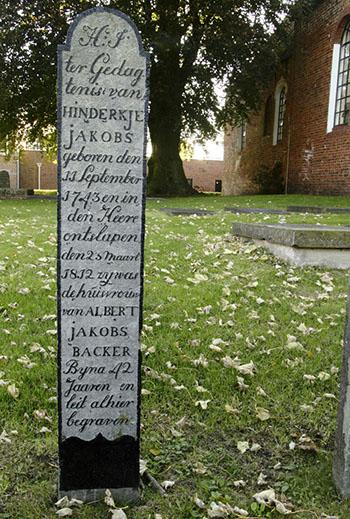 H: I
ter Gedag
tenis van
HINDERKJE
JAKOBS
geborn den
13 September
1743 en in
den Heere
ontslapen
den 25 Maart
1812 zy was
de huisvrouw
van ALBERT
JAKOBS
BACKER
Byna 42
Jaaren en
leit alhier
begraven